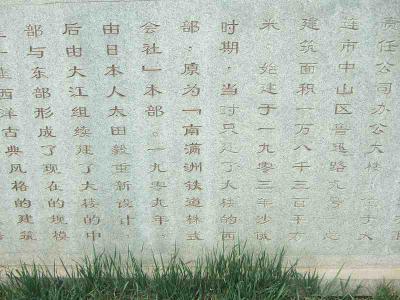 责任公司办公大楼
连市中山区鲁迅路九号
建筑面积一万八千三百平方
米，始建于一九零三年沙俄
时期，当时只建了大楼的西
部；原为「南满洲铁道株式
会社」本部。一九零九年，
由日本人太田毅重新设计，
后由大江组续建了大楼的中
部与东部形成了现在的规模
西洋古典风格的建筑